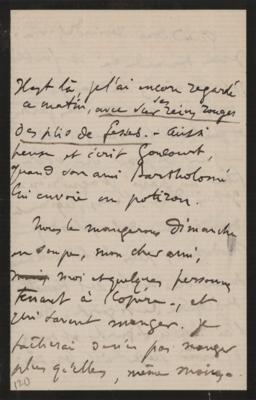 Il est là, je l'ai encore regardé
ce matin, avec des reins rouges
des plis de fesses. - Ainsi
pense et écrit Goncourt,
quand son ami Bartholomé
lui envoie un potiron.
Nous le mangerons dimanche
en soupe, mon cher ami,
moi et quelques personnes
tenant à l'opéra, et
qui savent manger. Je
tâcherai de n'en pas manger
plus qu'elles, même moins.
120